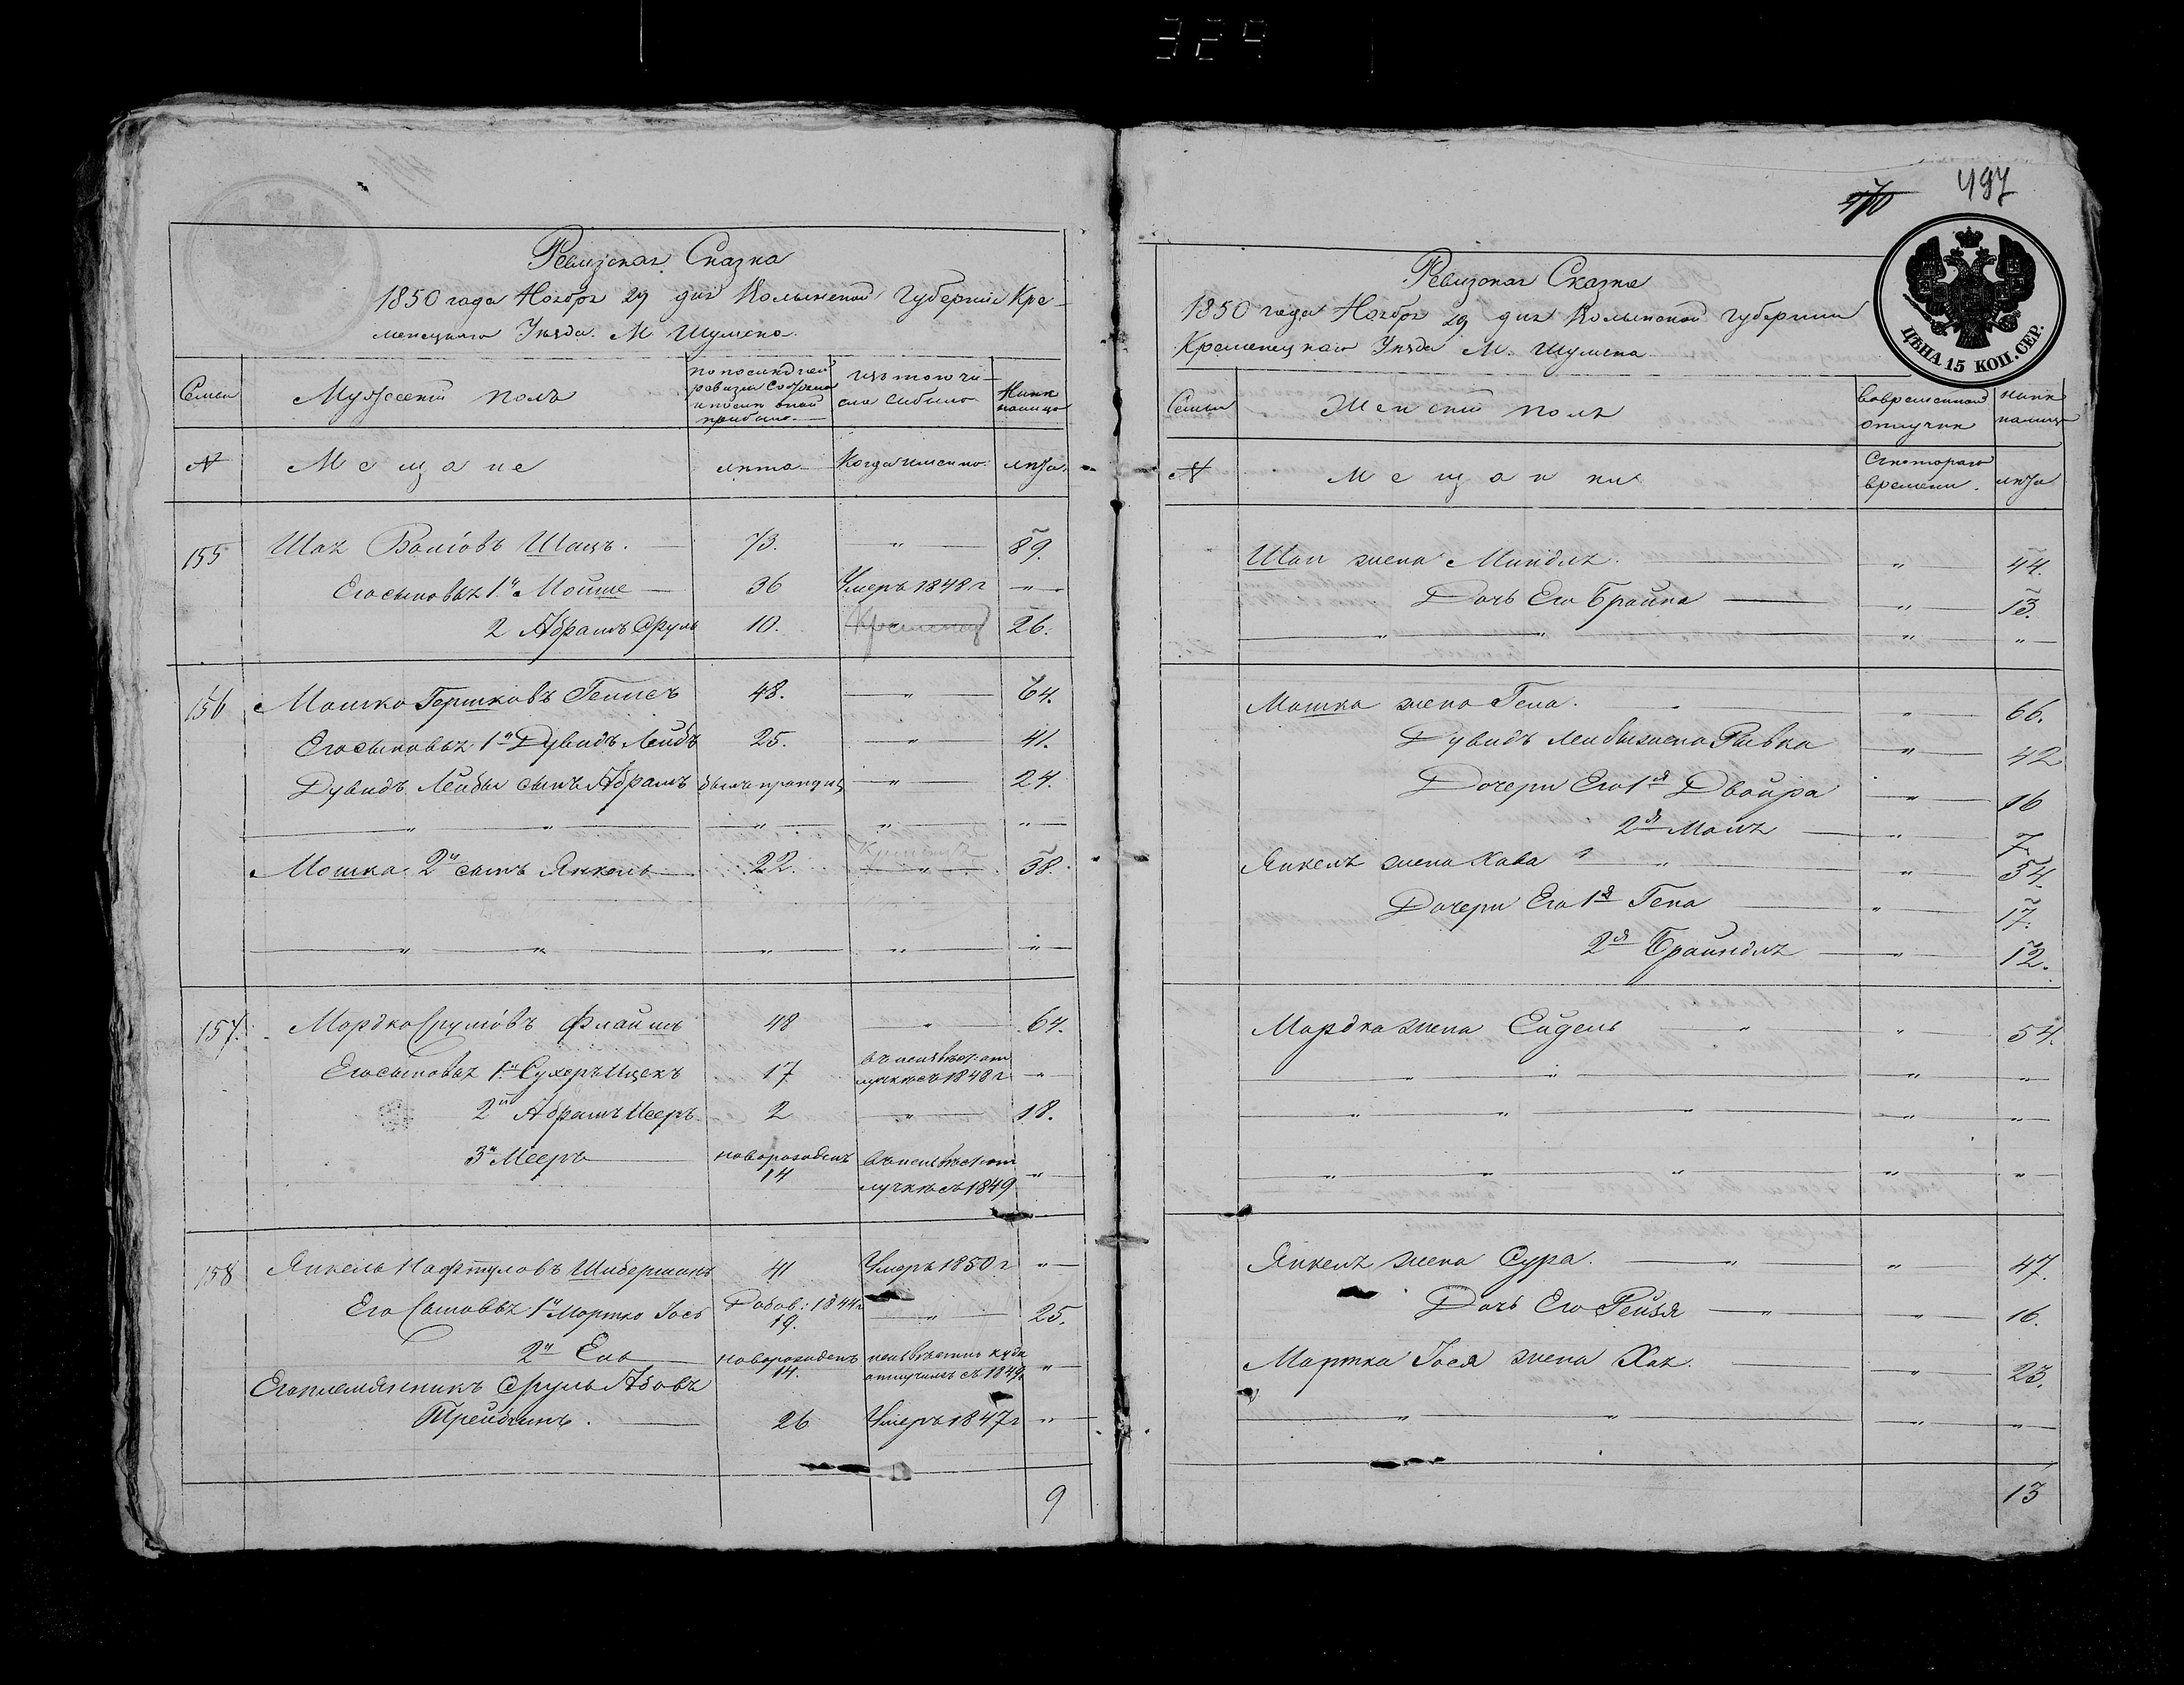 329
Ревизская Сказка
1850 года Ноября 29 дня Волынской Губернии Кре-
менецкаго Уезда М Шумска.
Семьи
Мужеский полъ
по последней
ревизии состояло
и после оной
прибыло
изъ того чи-
сла выбыло
Ныне
на лицо
№
Мещане
лета
Когда именно
лета
155 Шая Волiовъ Шацъ. 73. " 89.
Его сыновья 1й Мойше 36 Умеръ 1848 г "
2 Абрамъ Сруль 10. 26.
156 Мошко Гершковъ 48. " 64.
Его сыновья 1й Дувидъ Лейбъ 25. " 41.
Дувидъ Лейбы сынъ Абрамъ былъ пропущ " 24.
" " " " "
Мошка 2й сынъ Янкель 22. " 38.
" " " " "
157. Мордко Срулiовъ 48 " 64.
Его сыновья 1й Сухеръ Ицекъ 17 въ неизвест: от
лучке съ 1848 г "
2й Абрамъ Исеръ 2 " 18.
3й Мееръ новорожденъ
14 въ неизвест: от
лучке съ 1849 "
158 Янкель Нафтуловъ Шиберманъ 41 Умеръ 1850 г "
Его Сыновья 1й Мортко Iось Добав: 1844 г
19. " 25.
2й Ель новорожденъ
14. неизвестно куда
отлучился съ 1849. "
Его племянникъ Сруль Абовъ
26 Умеръ 1847 г "
9
470 497
ЦѢНА 15 КОП. СЕР.
Ревизская Сказка
1850 года Ноября 29 дня Волынской Губернии
Кременецкаго Уезда М. Шумска
Семьи
Женский полъ
Во временной
отлучке
Ныне
на лицо
№
Мещанки
Съ котораго
времени.
лета
Шаи жена Миндля. " 44.
Дочь Его Брайна " 13.
" " " "
Мошка жена Гена. " 66.
Дувидъ Лейбы жена Рывка " 42
Дочери Его 1я Двойра " 16
2я Маля " 7.
Янкеля жена Хава " " 34.
Дочери Его 1я Гена " 17.
2я Брайндля " 12.
Мордка жена Ейдель " " 54.
" " " "
" " " " "
" " " " "
Янкеля жена Сура. " " 47.
Дочь Его Рейзя " " 16.
Мортка Iося жена Хая. " 23.
" " " "
13